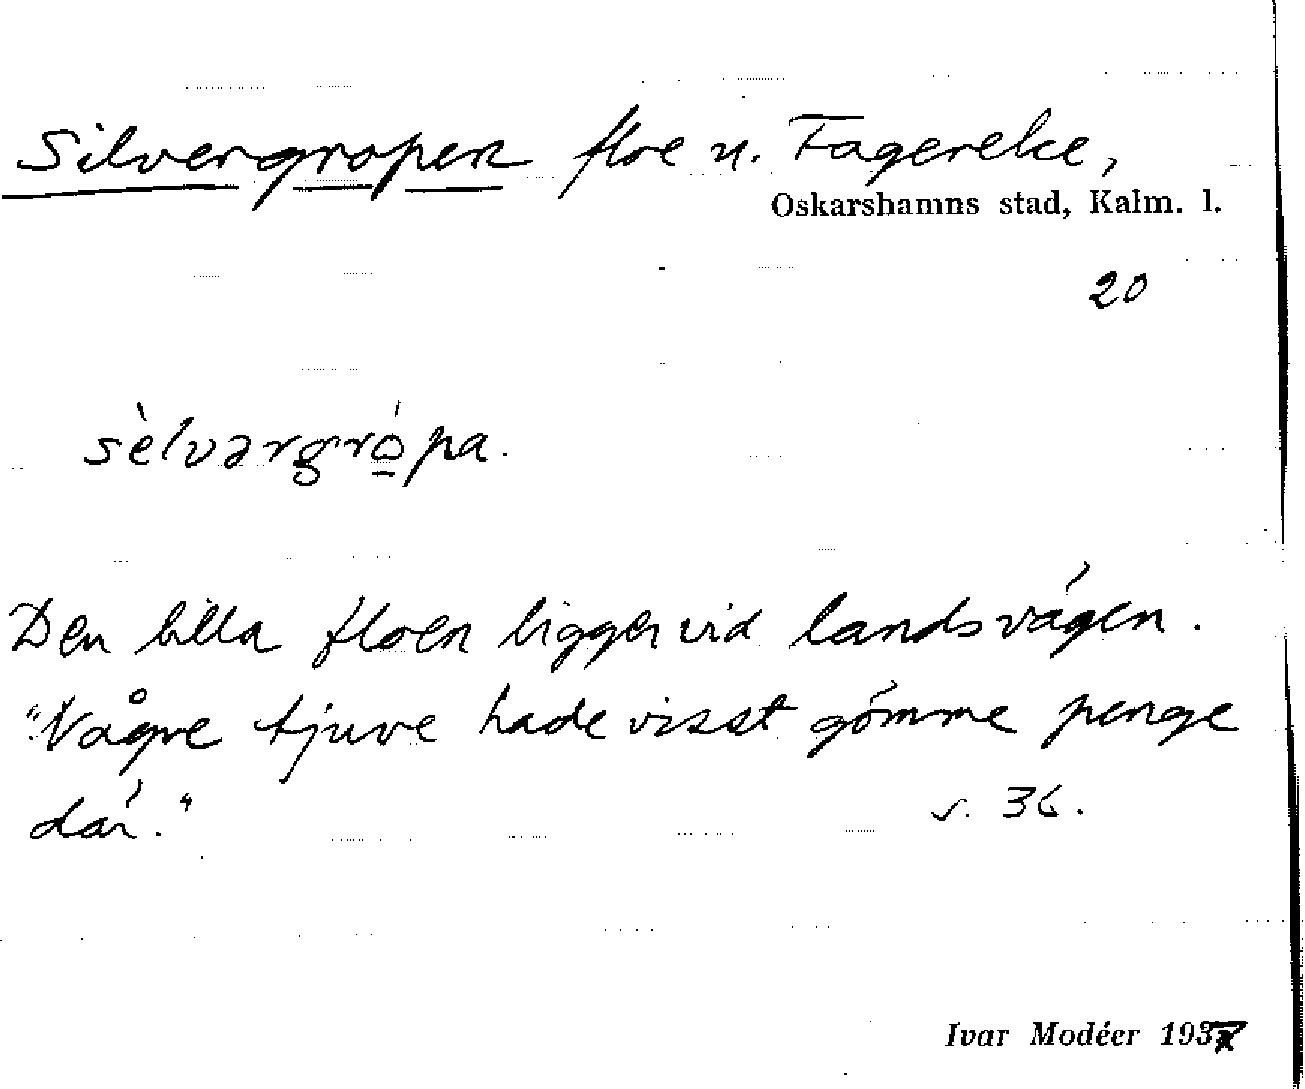 Silvergropen floe u. Fagereke,
Oskarshamns stad, Kalm. l.
20
sèlvərgró̱pa.
Den lilla floen ligger vid landsvägen.
"Någre tjuve hade visst gömme penge
där." s. 36.
Ivar Modéer 1937